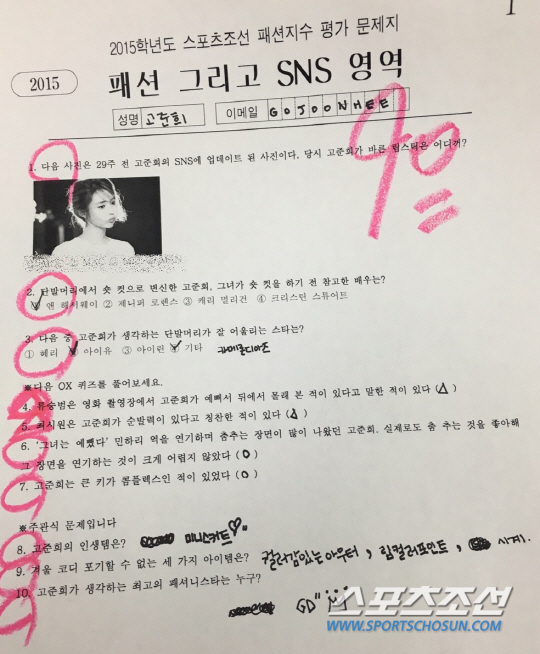 1
2015학년도 스포츠조선 패션지수 평가 문제지
2015
패션 그리고 SNS 영역
성명 고준희 이메일 GOJOONHEE
90
1. 다음 사진은 29주 전 고준희의 SNS에 업데이트 된 사진이다. 당시 고준희가 바른 립스틱은 어디꺼?
2. 단발머리에서 숏 컷으로 변신한 고준희, 그녀가 숏 컷을 하기 전 참고한 배우는?
앤 해서웨이 ② 제니퍼 로렌스 ③ 캐리 멀리건 ④ 크리스틴 스튜어트
3. 다음 중 고준희가 생각하는 단발머리가 잘 어울리는 스타는?
① 혜리 ② 아이유 ③ 아이린 ④ 기타 카메론디아즈
※다음 OX 퀴즈를 풀어보세요.
4. 류승범은 영화 촬영장에서 고준희가 예뻐서 뒤에서 몰래 본 적이 있다고 말한 적이 있다 (△)
5. 최시원은 고준희가 순발력이 있다고 칭찬한 적이 있다 (△)
6. '그녀는 예뻤다' 민하리 역을 연기하며 춤추는 장면이 많이 나왔던 고준희. 실제로도 춤 추는 것을 좋아해
그 장면을 연기하는 것이 크게 어렵지 않았다 (O)
7. 고준희는 큰 키가 콤플렉스인 적이 있었다 (O)
※주관식 문제입니다
8. 고준희의 인생템은? 미니스커트♡
9. 겨울 코디 포기할 수 없는 세 가지 아이템은? 컬러감있는아우터, 립컬러포인트, 시계.
10. 고준희가 생각하는 최고의 패셔니스타는 누구? GD"
스포츠조선
WWW.SPORTSCHOSUN.COM